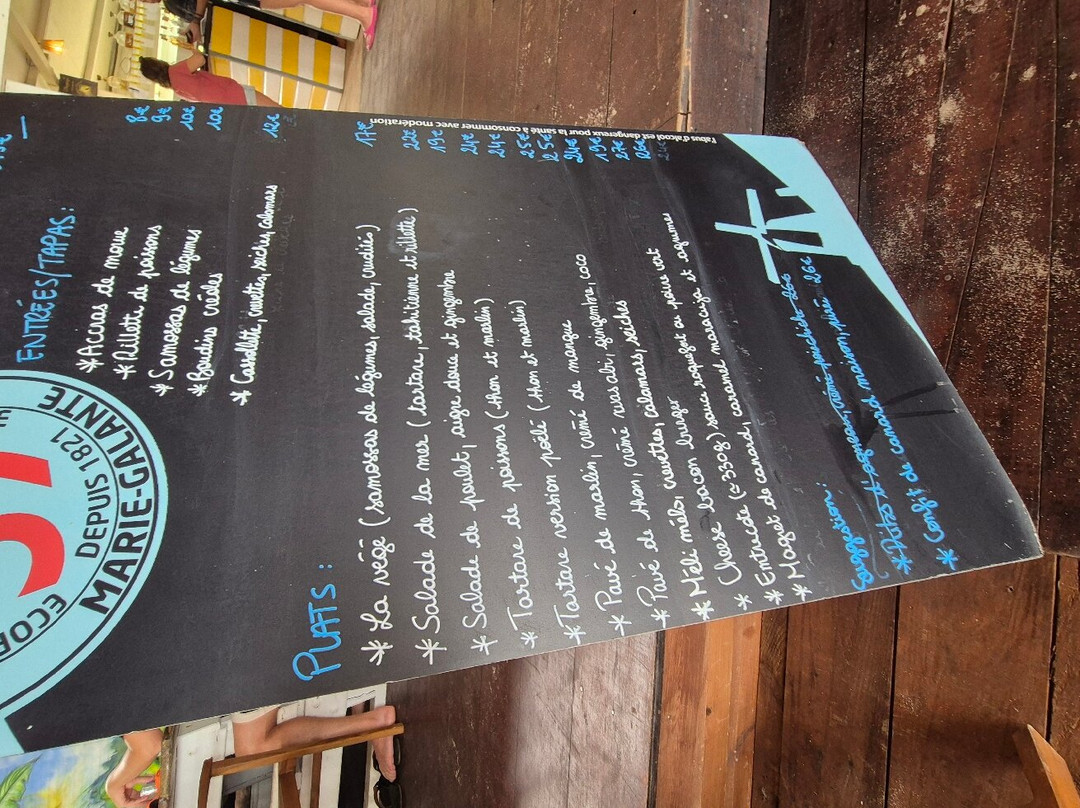 ECOR
DEPUIS 1821
MARIE-GALANTE
ENTRÉES/TAPAS:
* Accras de morue 8€
* Rillette de poissons 9€
* Samossas de légumes 10€
* Boudins créoles 10€
* Cassolette, crevettes, seiches, calamars 12€
PLATS:
* La végé (samossas de légumes, salade, crudités) 17€
* Salade de la mer (tartare, tahitienne et rillette) 22€
* Salade de poulet, aigre douce et gingembre 19€
* Tartare de poissons (thon et marlin) 24€
* Tartare version poêlé (thon et marlin) 24€
* Pavé de marlin, crème de mangue 25€
* Pavé de thon, crème wasabi, gingembre, coco 25€
* Méli mélo, crevettes, calamars, seiches 24€
* Cheese bacon burger 19€
* Entrecôte (≈330g) sauce roquefort ou poivre vert 27€
* Magret de canard, caramel maracuja et agrumes 26€
Suggestion:
* Confit de canard maison, purée 26€
l'abus d'alcool est dangereux pour la santé à consommer avec modération